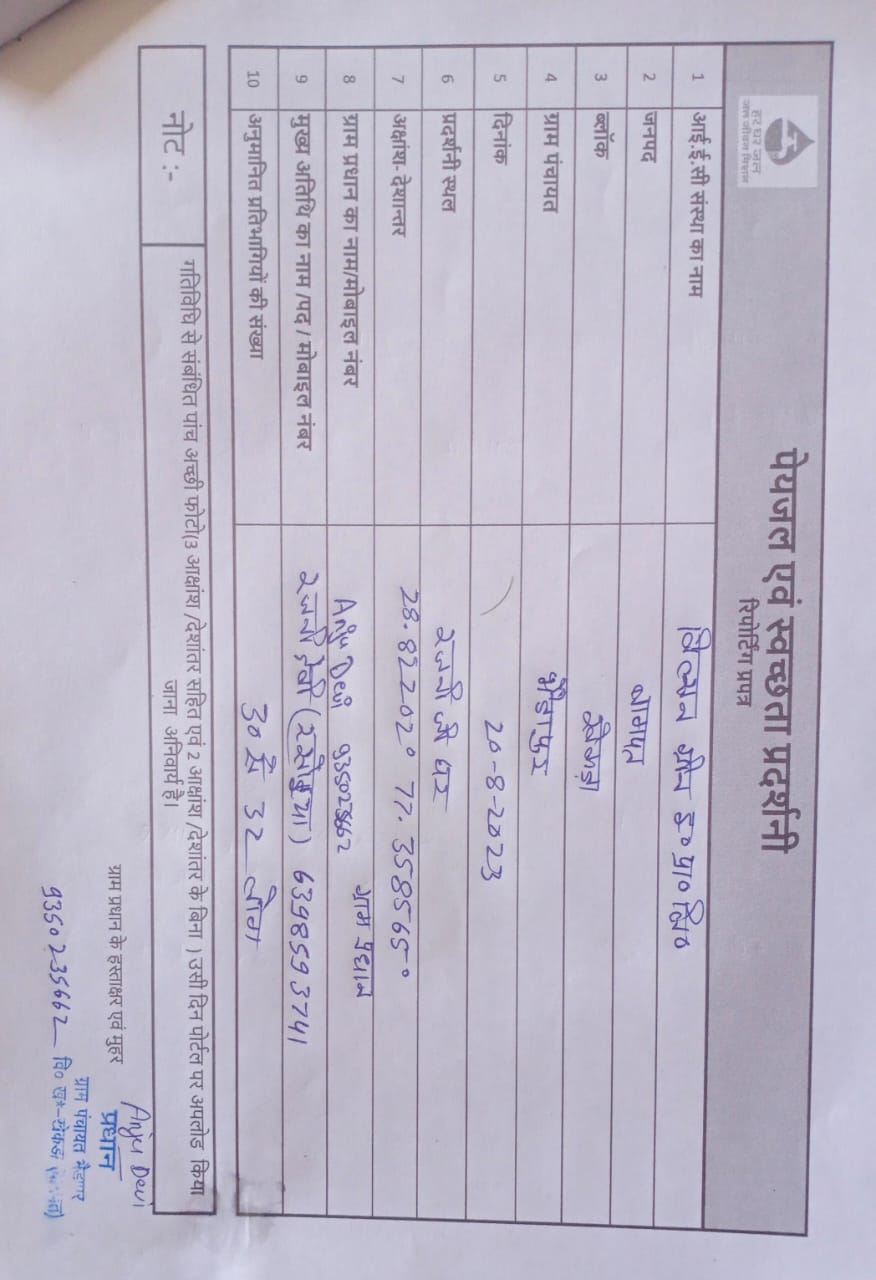 हर घर जल
जल जीवन मिशन
पेयजल एवं स्वच्छता प्रदर्शनी
रिपोर्टिंग प्रपत्र
1 आई.ई.सी संस्था का नाम
2 जनपद बागपत
3 ब्लॉक खेकड़ा
4 ग्राम पंचायत
5 दिनांक 20-8-2023
6 प्रदर्शनी स्थल रजनी के घर
7 अक्षांश- देशान्तर 28.822202° 77.358565°
8 ग्राम प्रधान का नाम/मोबाइल नंबर Anju Devi ग्राम प्रधान
9 मुख्य अतिथि का नाम /पद / मोबाइल नंबर रजनी देवी (रसोइया) 6398593741
10 अनुमानित प्रतिभागियों की संख्या 30 से 32 लोग
नोट :- गतिविधि से संबंधित पांच अच्छी फोटो(3 आक्षांश /देशांतर सहित एवं 2 आक्षांश /देशांतर के बिना ) उसी दिन पोर्टल पर अपलोड किया
जाना अनिवार्य है।
ग्राम प्रधान के हस्ताक्षर एवं मुहर
Anju Devi
प्रधान
ग्राम पंचायत
9350235662 वि० ख०-